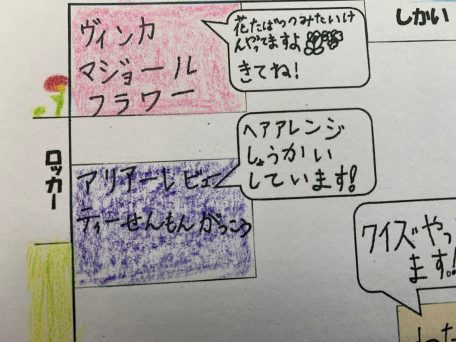 ヴィンカ
マジョール
フラワー
花たばづくりみたいけ
んやってますよ
きてね!
しかい
ロッカー
ヘアアレンジ
しょうかい
しています!
アリアーレビュー
ティーせんもんがっこう
クイズやっ
ます!